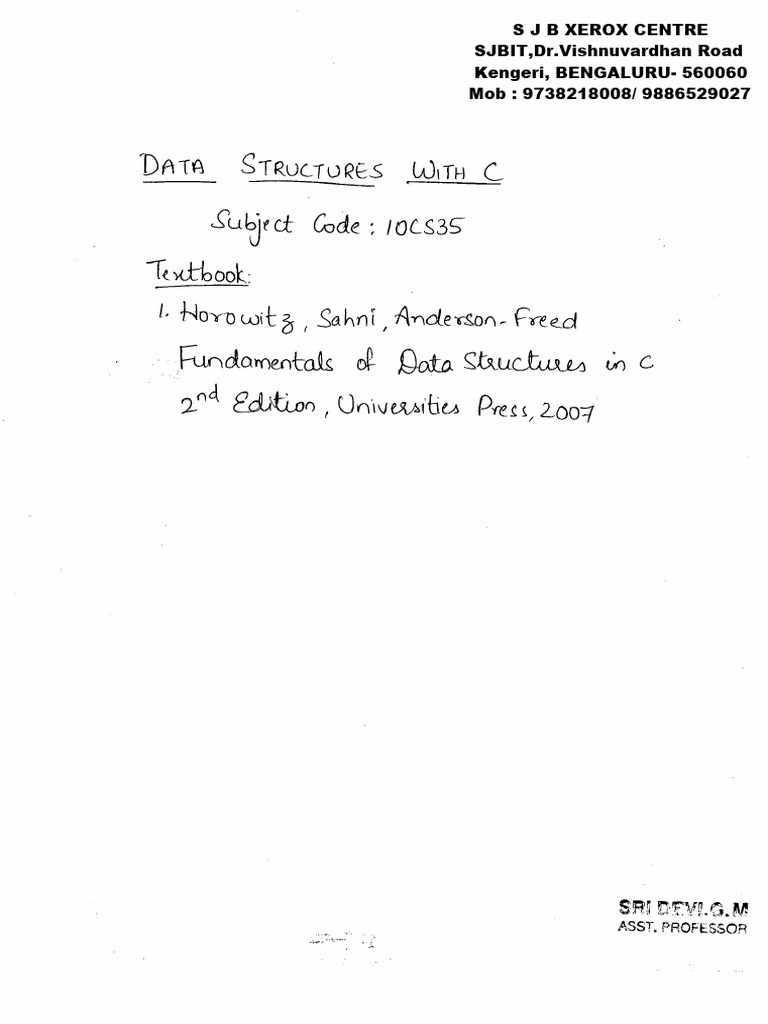 S J B XEROX CENTRE
SJBIT,Dr.Vishnuvardhan Road
Kengeri, BENGALURU- 560060
Mob : 9738218008/ 9886529027
DATA STRUCTURES WITH C
Subject Code : 10CS35
Textbook:
1. Horowitz, Sahni, Anderson-Freed
Fundamentals of Data Structures in C
2nd Edition, Universities Press, 2007
SRI DEVI.G.M
ASST. PROFESSOR